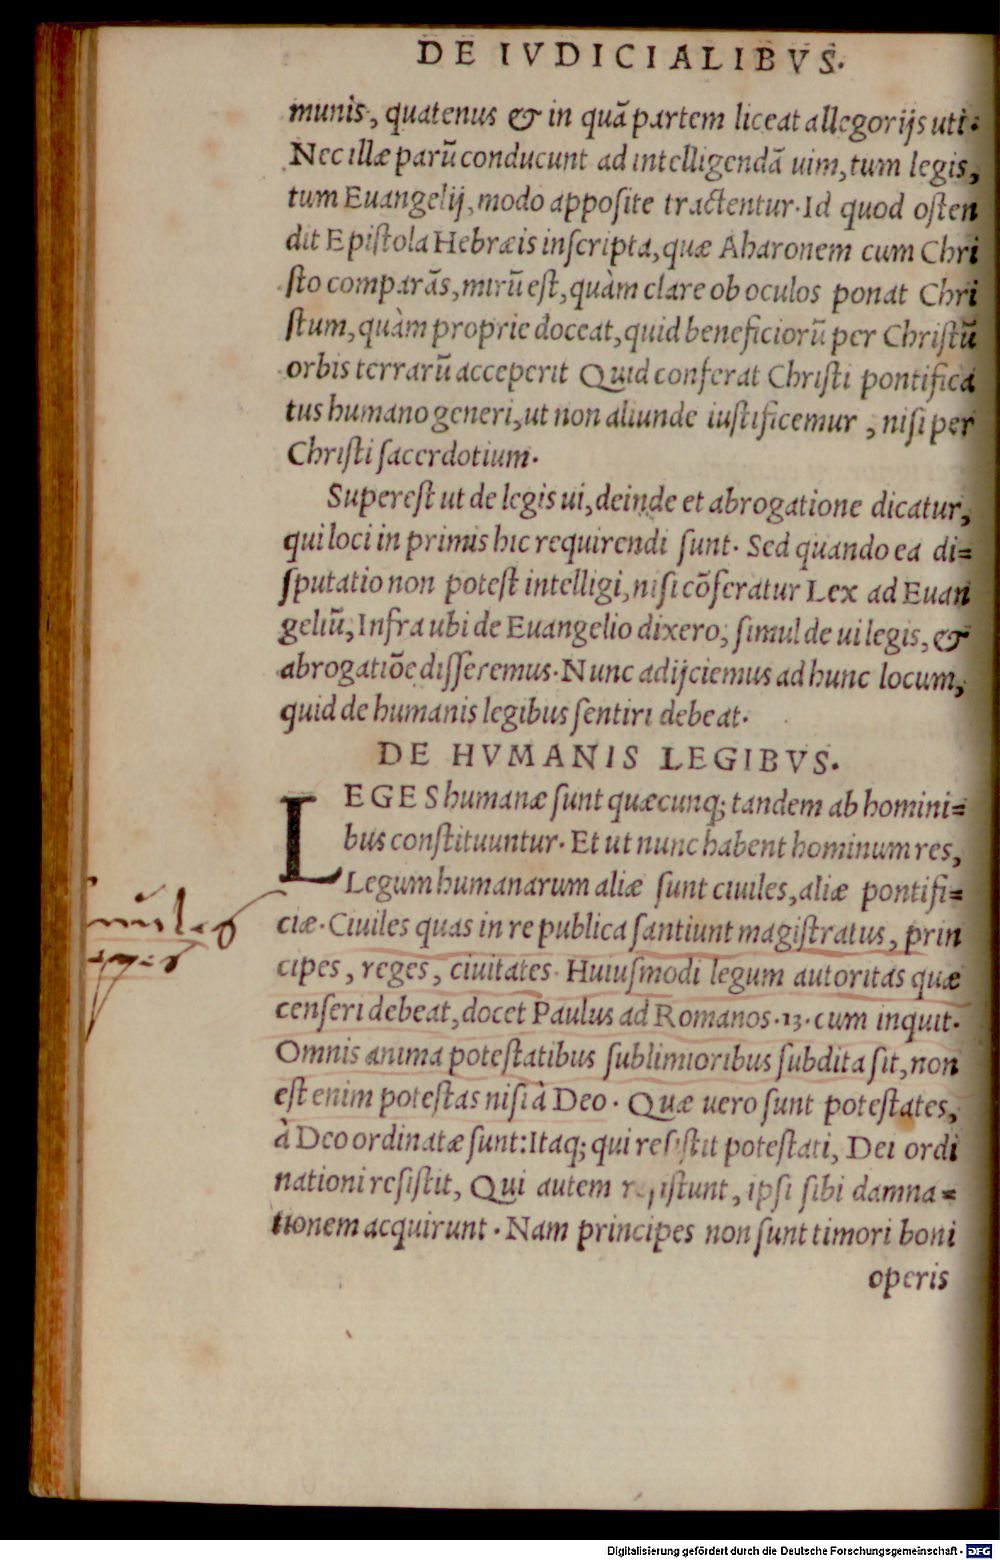 DE IVDICIALIBVS.
munis, quatenus & in quã partem liceat allegorijs uti.
Nec illæ parũ conducunt ad intelligendã uim, tum legis,
tum Euangelij, modo apposite tractentur. Id quod osten
dit Epistola Hebræis inscripta, quæ Aharonem cum Chri
sto comparãs, mirũ est, quàm clare ob oculos ponat Chri
stum, quàm proprie doceat, quid beneficiorũ per Christũ
orbis terrarũ acceperit Quid conferat Christi pontifica
tus humano generi, ut non aliunde iustificemur, nisi per
Christi sacerdotium.
Superest ut de legis ui, deinde et abrogatione dicatur,
qui loci in primis hic requirendi sunt. Sed quando ea di=
sputatio non potest intelligi, nisi cõferatur Lex ad Euan
geliũ, Infra ubi de Euangelio dixero, simul de ui legis, &
abrogatiõe disseremus. Nunc adijciemus ad hunc locum,
quid de humanis legibus sentiri debeat.
DE HVMANIS LEGIBVS.
LEGES humanæ sunt quæcunq; tandem ab homini=
bus constituuntur. Et ut nunc habent hominum res,
Legum humanarum aliæ sunt ciuiles, aliæ pontifi=
ciæ. Ciuiles quas in re publica santiunt magistratus, prin
cipes, reges, ciuitates. Huiusmodi legum autoritas quæ
censeri debeat, docet Paulus ad Romanos. 13. cum inquit.
Omnis anima potestatibus sublimioribus subdita sit, non
est enim potestas nisi à Deo. Quæ uero sunt potestates,
à Deo ordinatæ sunt: Itaq; qui resistit potestati, Dei ordi
nationi resistit, Qui autem resistunt, ipsi sibi damna=
tionem acquirunt. Nam principes non sunt timori boni
operis
Digitalisierung gefördert durch die Deutsche Forschungsgemeinschaft - DFG